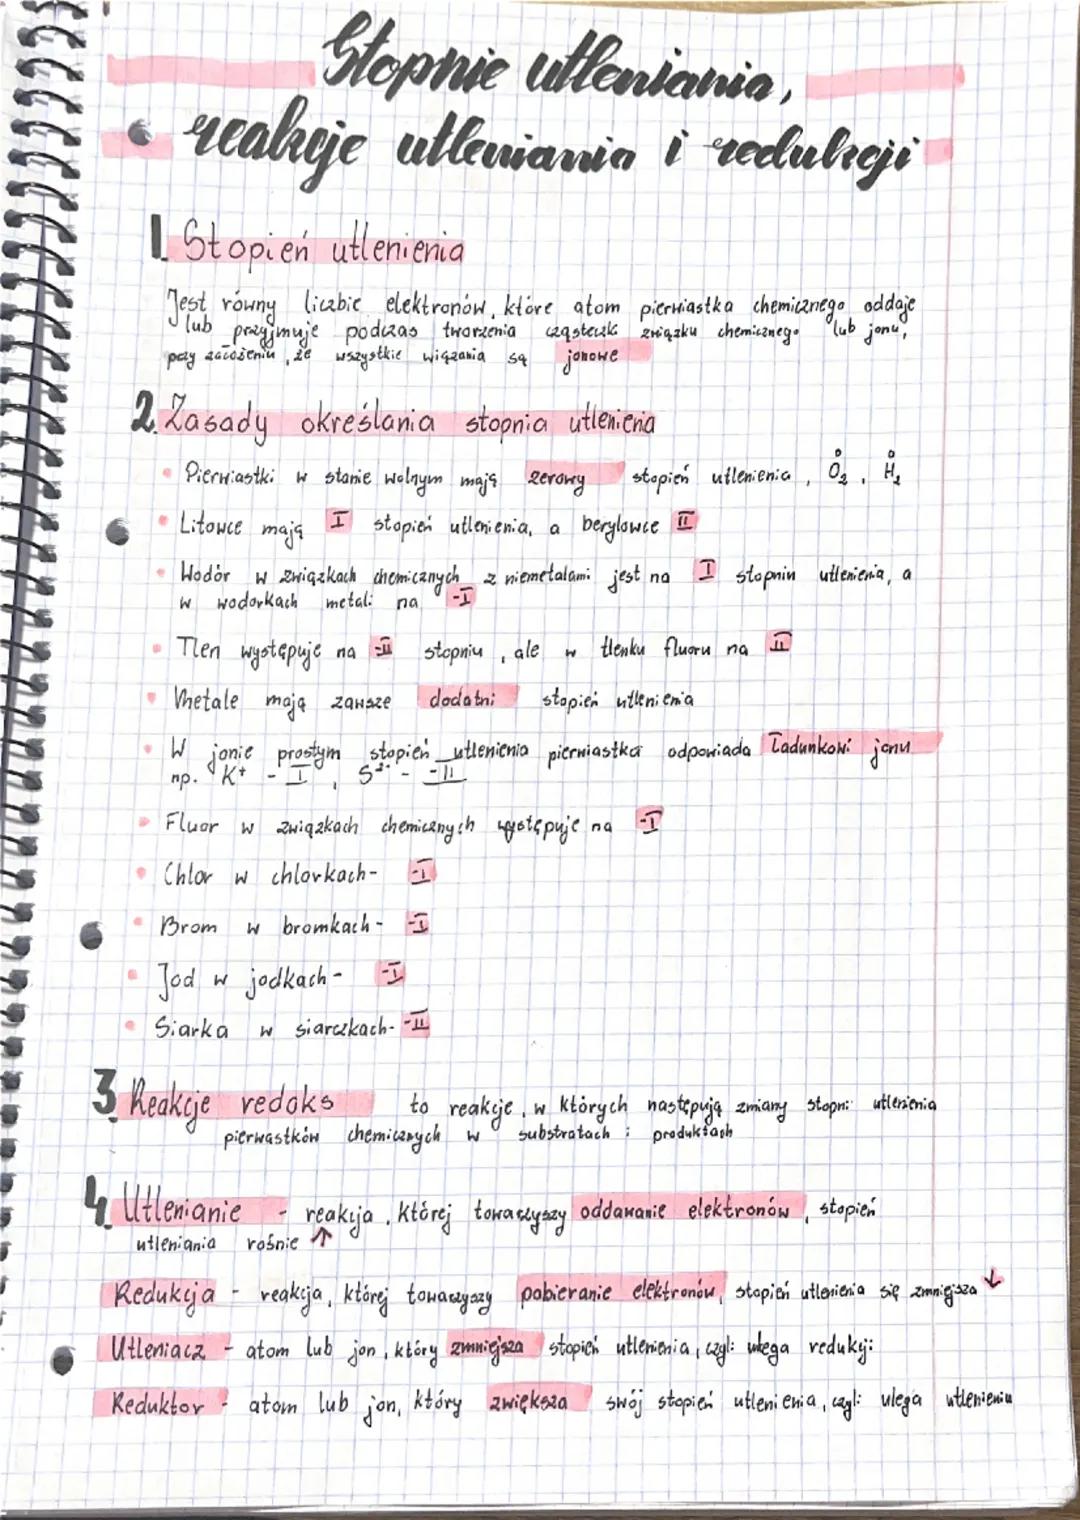 Stopnie utleniania,
reakcje utleniania i redukcji
1. Stopień utlenienia
Jest równy liczbie elektronów, które atom pierwiastka chemicznego oddaje
lub przyjmuje podczas tworzenia cząsteczki związku chemicznego lub jonu,
przy założeniu, że wszystkie wiązania są jonowe
2. Zasady określania stopnia utlenienia
• Pierwiastki w stanie wolnym mają zerowy stopień utlenienia, O₂⁰, H₂⁰
• Litowce mają I stopień utlenienia, a berylowce II
• Wodór w związkach chemicznych z niemetalami jest na I stopniu utlenienia, a
w wodorkach metali na -I
• Tlen występuje na -II stopniu, ale w tlenku fluoru na II
• Metale mają zawsze dodatni stopień utlenienia
• W jonie prostym stopień utlenienia pierwiastka odpowiada ładunkowi jonu
np. K⁺ - I, S²⁻ - -II
• Fluor w związkach chemicznych występuje na -I
• Chlor w chlorkach- -I
• Brom w bromkach- -I
• Jod w jodkach- -I
• Siarka w siarczkach- -II
3. Reakcje redoks to reakcje, w których następują zmiany stopni utlenienia
pierwastków chemicznych w substratach i produktach
4. Utlenianie - reakcja, której towarzyszy oddawanie elektronów, stopień
utleniania rośnie ↑
Redukcja - reakcja, której towarzyszy pobieranie elektronów, stopień utlenienia się zmniejsza ↓
Utleniacz - atom lub jon, który zmniejsza stopień utlenienia, czyli ulega redukcji
Reduktor - atom lub jon, który zwiększa swój stopień utlenienia, czyli ulega utlenieniu